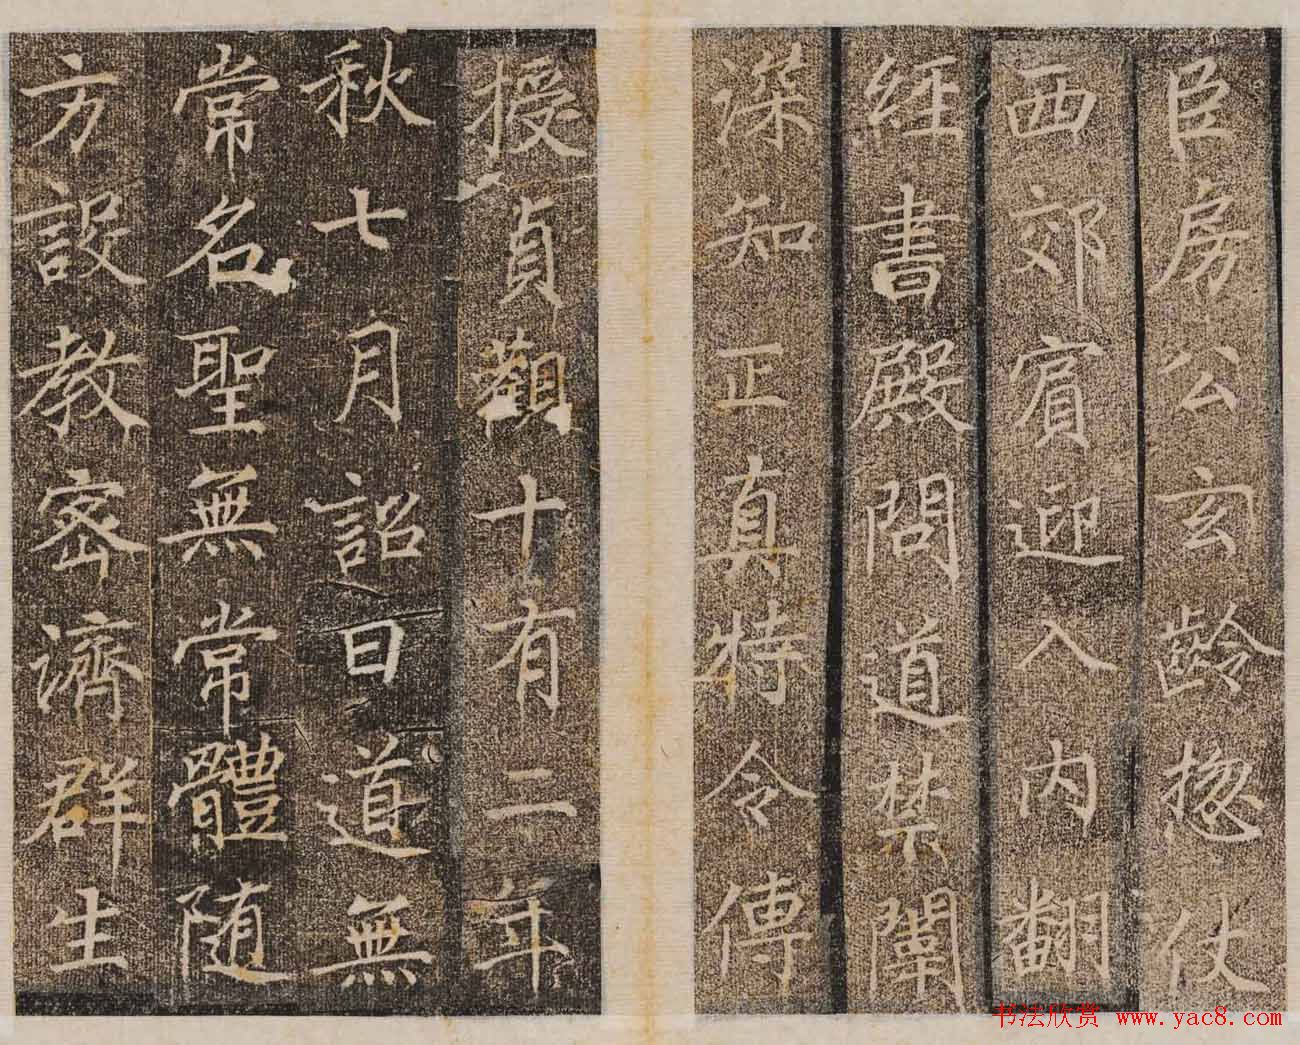 臣房公玄齡揔仗
西郊賓迎入內翻
經書殿問道禁闈
深知正真特令傳
授貞觀十有二年
秋七月詔曰道無
常名聖無常體随
方設教密濟群生
书法欣赏 www.yac8.com